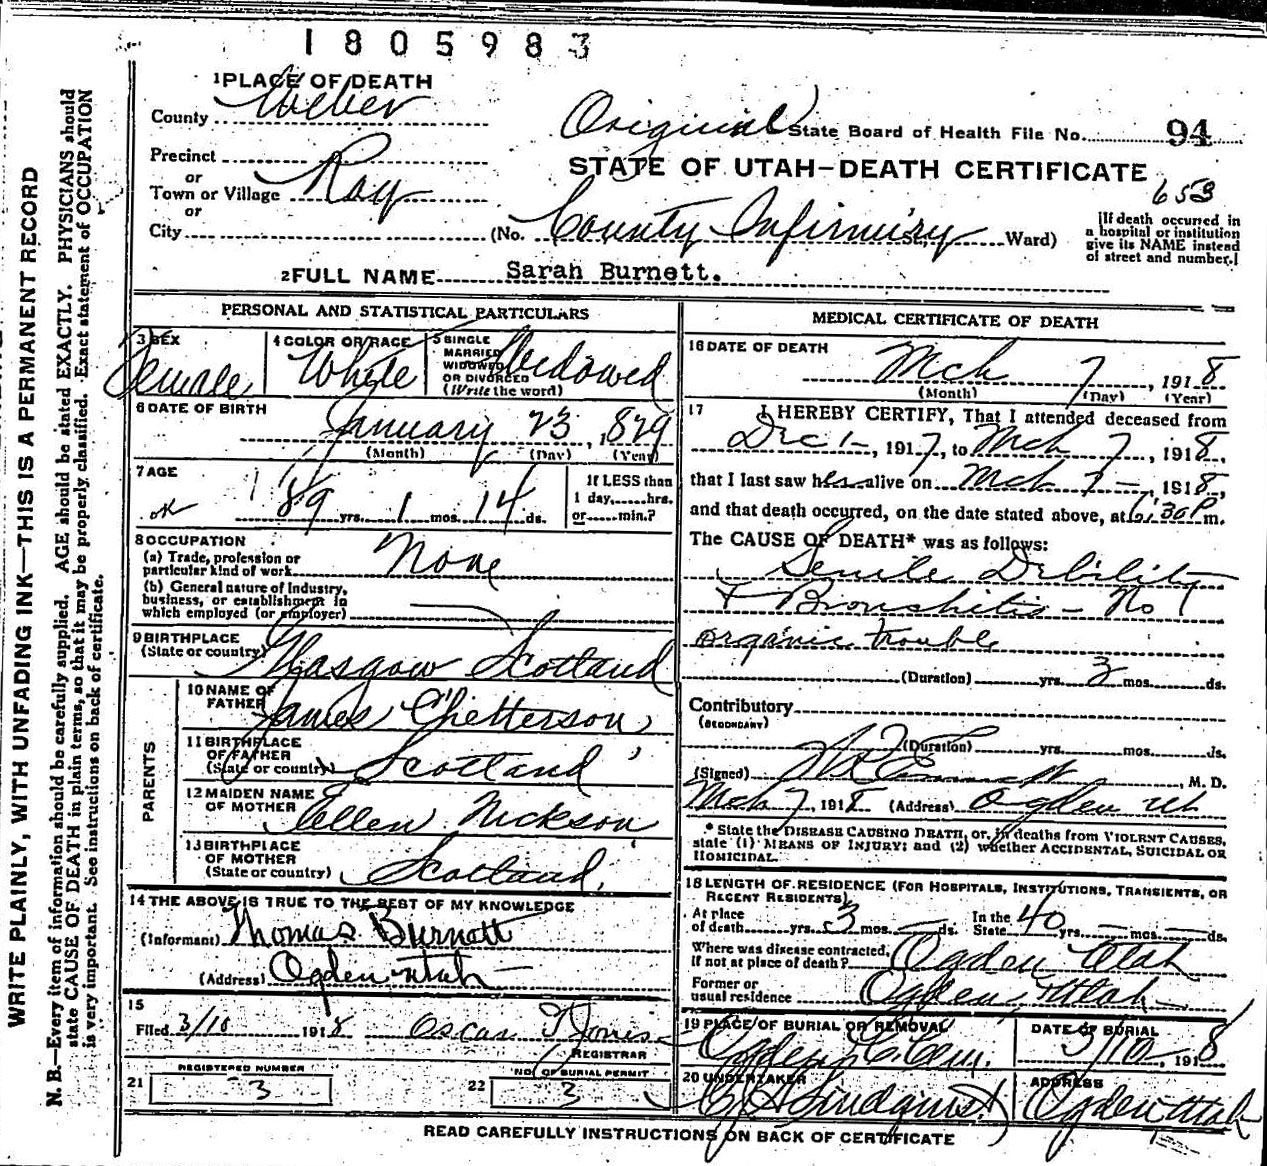 1805983
1 PLACE OF DEATH
County Weber
Original State Board of Health File No. 94
Precinct
or
Town or Village Roy
or
City
STATE OF UTAH—DEATH CERTIFICATE
653
(No. County Infirmiry Ward)
[If death occurred in
a hospital or institution
give its NAME instead
of street and number.]
2 FULL NAME Sarah Burnett.
PERSONAL AND STATISTICAL PARTICULARS
3 SEX Female
4 COLOR OR RACE White
5 SINGLE
MARRIED
WIDOWED
OR DIVORCED
(Write the word)
Widowed
6 DATE OF BIRTH
January 23, 1829
(Month) (Day) (Year)
7 AGE
ok 89 yrs. 1 mos. 14 ds.
If LESS than
1 day,......hrs.
or......min.?
8 OCCUPATION
(a) Trade, profession or
particular kind of work None
(b) General nature of industry,
business, or establishment in
which employed (or employer)
9 BIRTHPLACE
(State or country) Glasgow Scotland
PARENTS
10 NAME OF
FATHER James Chetterson
11 BIRTHPLACE
OF FATHER
(State or country) Scotland
12 MAIDEN NAME
OF MOTHER Ellen Nickson
13 BIRTHPLACE
OF MOTHER
(State or country) Scotland.
14 THE ABOVE IS TRUE TO THE BEST OF MY KNOWLEDGE
(Informant) Thomas Burnett
(Address) Ogden Utah
15
Filed 3/10 1918 Oscar T Jones
REGISTRAR
REGISTERED NUMBER
21 3
NO. OF BURIAL PERMIT
22 3
MEDICAL CERTIFICATE OF DEATH
16 DATE OF DEATH
Mch 7, 1918
(Month) (Day) (Year)
17 I HEREBY CERTIFY, That I attended deceased from
Dec 1-, 1917, to Mch 7, 1918,
that I last saw her alive on Mch 7-, 1918,
and that death occurred, on the date stated above, at 6:30 P.m.
The CAUSE OF DEATH* was as follows:
Senile Debility
+ Bronchitis - No
organic trouble
(Duration) yrs. 3 mos. ds.
Contributory
(SECONDARY)
(Duration) yrs. mos. ds.
(Signed) Emmett, M. D.
Mch 7, 1918 (Address) Ogden Ut
* State the DISEASE CAUSING DEATH, or, in deaths from VIOLENT CAUSES,
state (1) MEANS OF INJURY; and (2) whether ACCIDENTAL, SUICIDAL OR
HOMICIDAL.
18 LENGTH OF RESIDENCE (FOR HOSPITALS, INSTITUTIONS, TRANSIENTS, OR
RECENT RESIDENTS)
At place
of death yrs. 3 mos. ds.
In the
State 40 yrs. mos. ds.
Where was disease contracted,
if not at place of death? Ogden Utah
Former or
usual residence Ogden Utah
19 PLACE OF BURIAL OR REMOVAL
Ogden C. Cem.
DATE OF BURIAL
3/10, 1918
20 UNDERTAKER
Lindquist
ADDRESS
Ogden Utah
READ CAREFULLY INSTRUCTIONS ON BACK OF CERTIFICATE
WRITE PLAINLY, WITH UNFADING INK—THIS IS A PERMANENT RECORD
N. B.—Every item of information should be carefully supplied. AGE should be stated EXACTLY. PHYSICIANS should
state CAUSE OF DEATH in plain terms, so that it may be properly classified. Exact statement of OCCUPATION
is very important. See instructions on back of certificate.